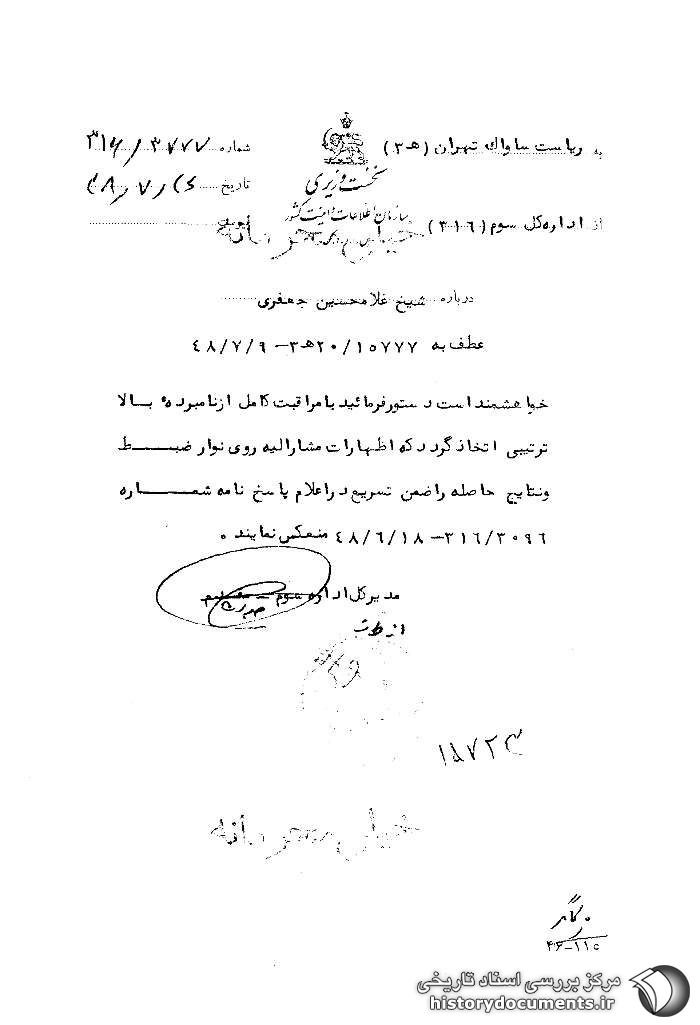 به ریاست ساواک تهران (ه‍ ۳)
شماره ۳۱۶/۳۷۷۷
نخست وزیری
تاریخ ۴۸/۷/۱۶
سازمان اطلاعات و امنیت کشور
از اداره کل سوم (۳۱٦)
خیلی محرمانه
درباره شیخ غلامحسین جعفری
عطف به ۱۵۷۷۷/۲۰ه‍۳-۴۸/۷/۹
خواهشمند است دستور فرمائید با مراقبت کامل از نامبرده بالا
ترتیبی اتخاذ گردد که اظهارات مشارالیه روی نوار ضبط
و نتایج حاصله را ضمن تسریع در اعلام پاسخ نامه شماره
۳۱٦/۳۰۹٦-۴۸/٦/۱۸ منعکس نمایند ۰
مدیرکل اداره سوم
از طرف
۱۵۷۲۳
خیلی محرمانه
۴۶-۱۱۵
مرکز بررسی اسناد تاریخی
historydocuments.ir